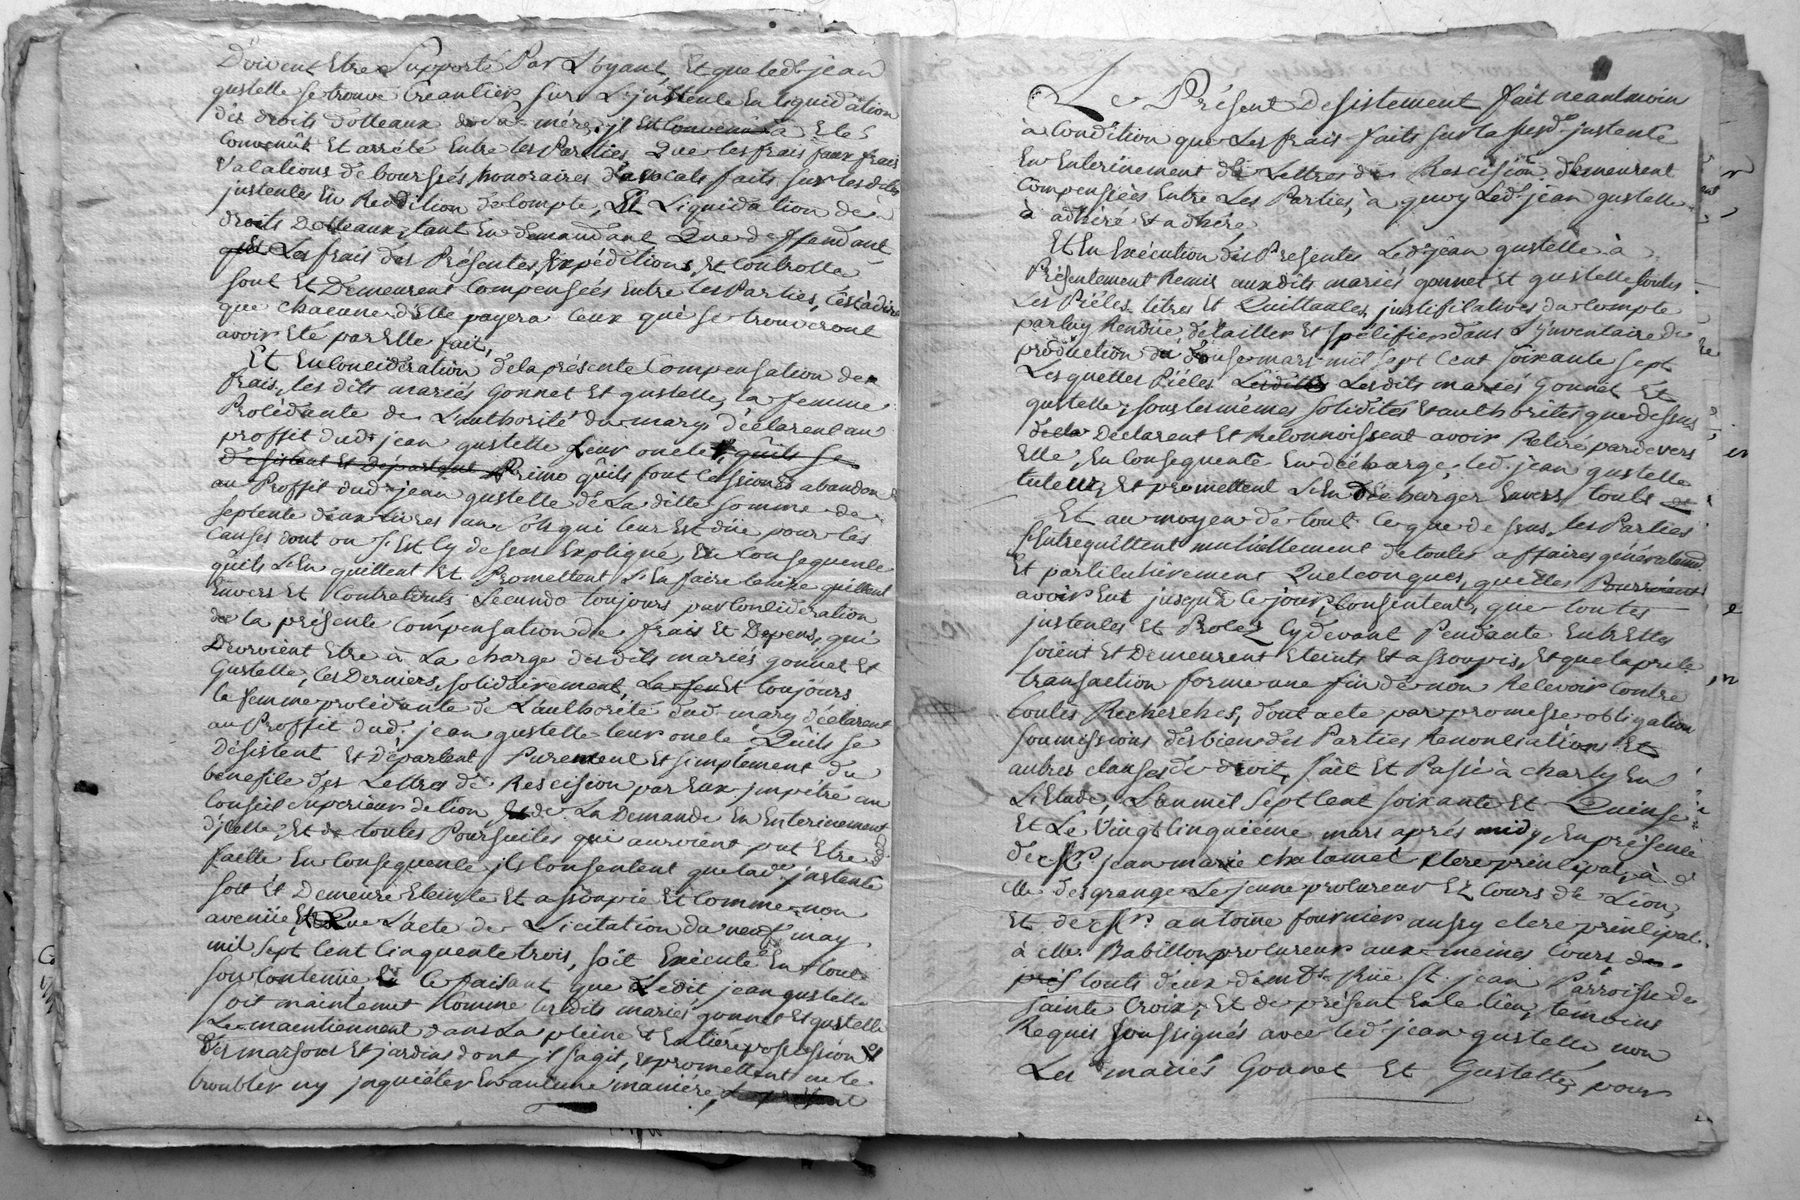 Doivent Etre Supporté Par L'oyant, Et que led. jean
gustelle se trouve Creancier sur L'justence En liquidâtion
dés droits dotteaux de Sa mére, jl Est Convenü a Eté
Convenüt Et arrété Entre les Parties, Que les frais faux frais
Vacations débourses, honoraires d'avocats faits sur les dites
justences En Reddition décompte, Et Liquidation de
droits Dotteaux, tant En demandant Que deffendant
que Les frais des Présentes, Expéditions, Et Controlle
sont Et Demeurent Compensées Entre les Parties, C'est à dire
que Chacune d'Elle payera Ceux qui se trouveront
avoir Eté par Elle fait,
Et En Considération de la présente Compensation de
frais, les dits mariés Gonnet Et gustelle, la femme
Procédante de L'authorité du mary, déclarent au
proffit dud. jean gustelle Leur oncle, quîls se
désistent Et départent Primo quîls font Cession Et abandon
au Proffit dud. jean gustelle dé La ditte somme de
septente deux Livres un sols qui leur Est düe pour les
Causes dont on s'Est Cy dessus Expliqué, En Consequence
quîls L'En quittent Et Promettent L'En faire tenir quitte
Envers Et Contre touts Secundo toujours par Considération
de la présente Compensation de frais Et Depens, qui
Devroient Etre à La charge desdits mariés gonnet Et
Gustelle, Ces Derniers, solidairement, La fem Et toujours
la femme procédante de L'authorité dud. mary déclarent
au Proffit dud. jean gustelle leur oncle, Quîls se
Désistent Et départent Purement Et simplement du
benefice des Lettres dé Rescision par Eux jmpétré au
Conseil superieur de Lion, Et de La Demande En Enterinement
d'jcelle, Et de toutes Poursuites qui auroient put Etre
faitte En Consequence, jls Consentent que lad. justence
soit Et Demeure Eteinte Et assoupie Et Comme non
avenüe, Et Que L'acte de Licitation du neuf may
mil sept Cent Cinquente trois, soit Exécuté En tout
son Contenüe, Et Ce faisant que Ledit jean gustelle
soit maintenut Comme lesdits mariés gonnet Et gustelle
Le maentiennent dans La pleine Et Entiére possession
des maisons Et jardins dont jl s'agit, Et promettent ne le
troubler ny jnquiéter En aucune maniére, Le présent
Le Présent desistement fait neantmoin
à Condition que Les frais faits sur la susd. justence
En Enterinement dé Lettres de Rescision demeurent
Compensées Entre Les Parties, à quoy Led. jean gustelle
à adhéré Et adhére,
Et En Exécution dés Presentes Led. jean gustelle à
Présentement Remis aux dits mariés gonnet Et gustelle toutes
Les Piéces, titres Et Quittances, justificatives du Compte
par luy Rendüe, détailler Et spécifier dans L'jnventaire de
production du douse mars mil sept Cent soixante sept
Les quelles Piéces Lesdits Les dits mariés Gonnet Et
gustelle, sous les mémes solidités Et authorités que dessus
Déclarent Et Reconnoissent avoir Retiré pardevers
Elle, En Consequence En décharge, led. jean gustelle
tuteur, Et promettent L'En décharger Envers touts
Et au moyen dé tout Ce que dessus, les Parties
s'Entrequittent mutüellement de toutes affaires généralement
Et particuliérement Quelconques, quelles Pourroient
avoir Eut jusqu'à Ce jour, Consentent, que toutes
justences Et Procéz Cy devant Pendante Entr'Elles
soient Et Demeurent Eteints Et assoupis, Et que la pnte.
transaction forme une fin dé non Recevoir Contre
toutes Recherches, dont acte par promesse obligation
soumissions des biens dés Parties Renonciations Et
autres clauses de droit, fait Et Passé à charly En
L'Etude, L'an mil sept Cent soixante Et Quinse
Et Le Vingt Cinquiéme mars aprés midy, En présence
de Sr. jean marie chalamel clerc principal, à
Me desgrange Le jeune procureur Ez Cours dé Lion,
Et de Sr. antoine fournier aussy clerc principal
à Me. Babillon procureur aux mémes Cours
touts deux demts. Rue St. jean Parroisse de
Sainte Croix, Et de présent En Ce lieu, témoins
Requis soussignés avec led. jean gustelle, non
Les mariés Gonnet Et Gustelle, pour